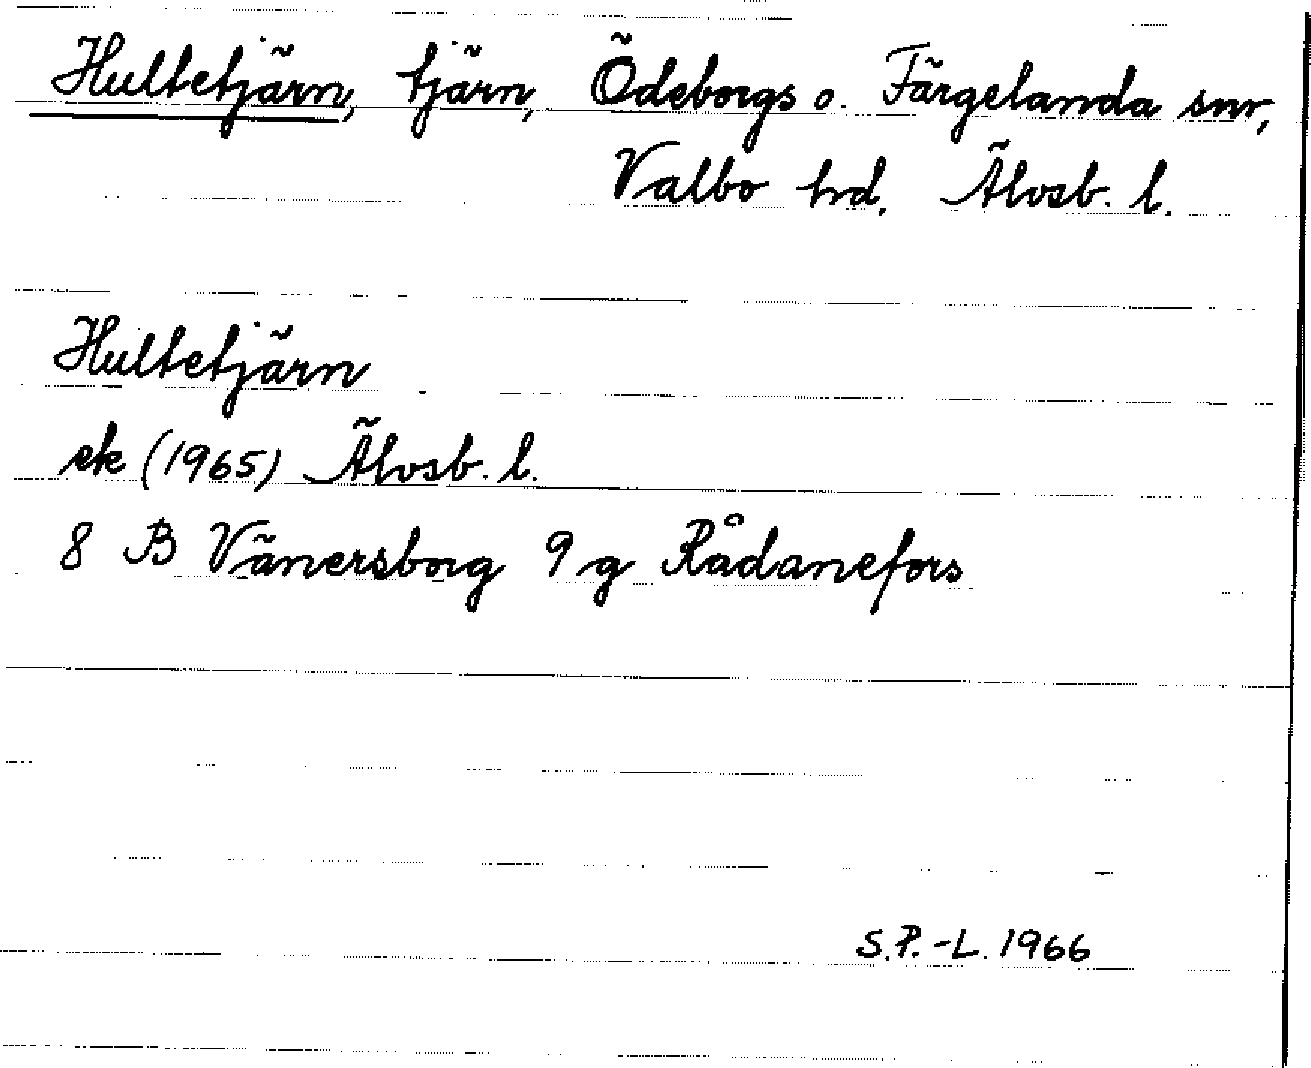 Hultetjärn, tjärn, Ödeborgs o. Färgelanda snr,
Valbo hd. Älvsb. l.
Hultetjärn
ek (1965) Älvsb. l.
8 B Vänersborg 9 g Rådanefors
S.P.-L. 1966